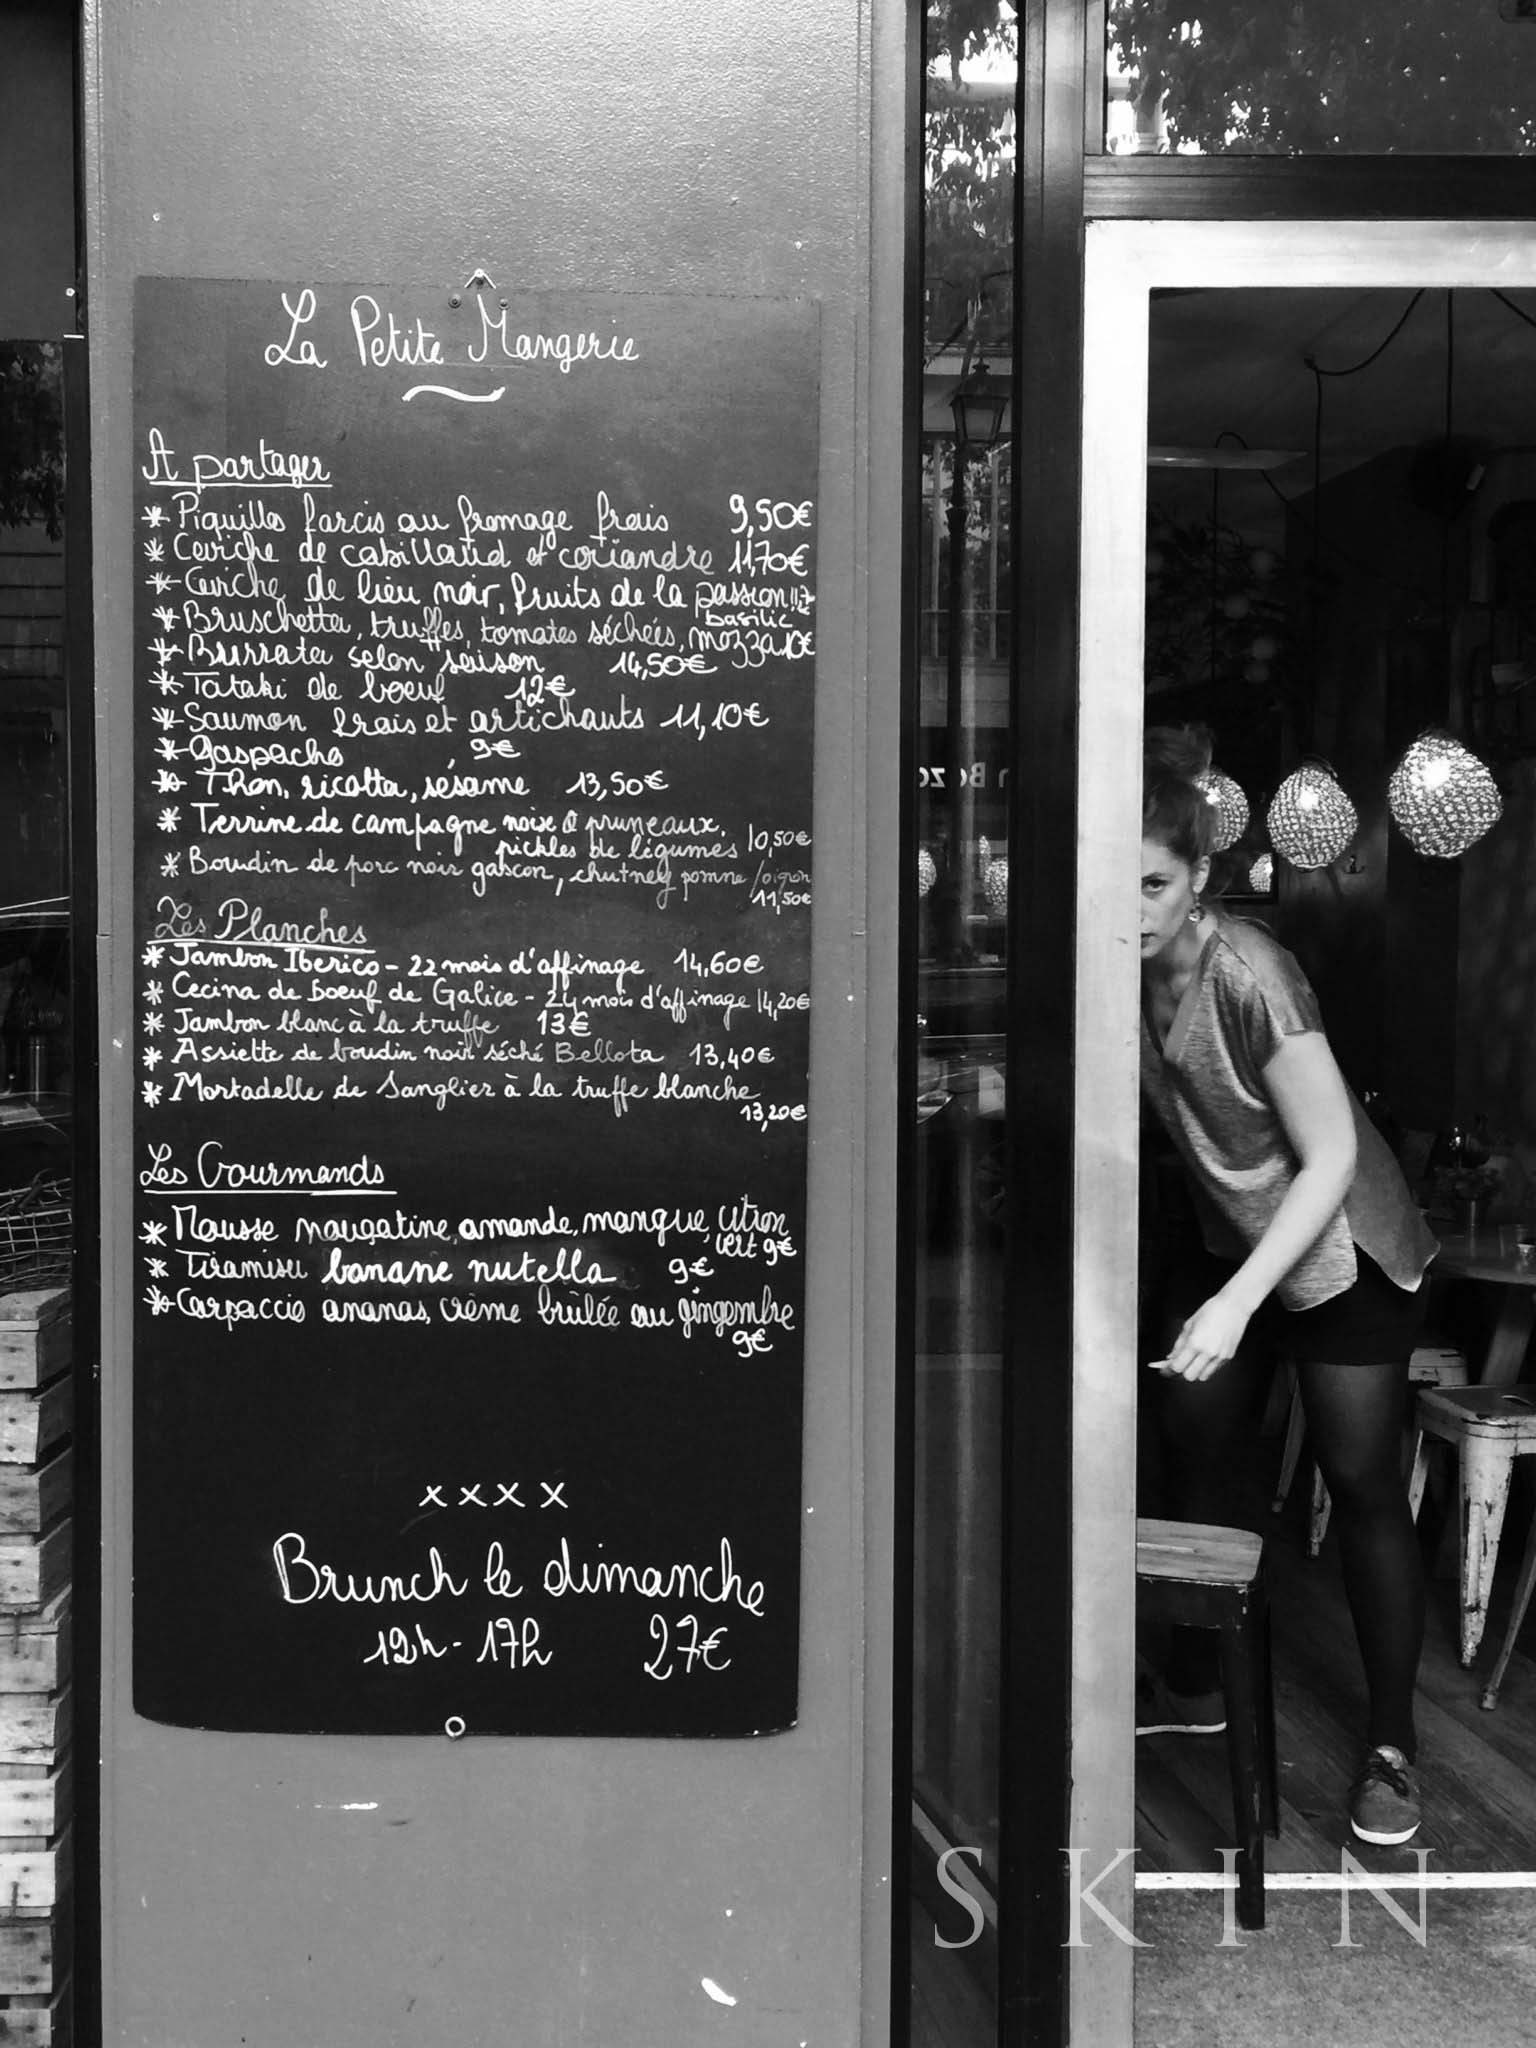 La Petite Mangerie
A partager
* Piquillos farcis au fromage frais 9,50€
* Ceviche de cabillaud et coriandre 11,70€
* Ceviche de lieu noir, fruits de la passion 11,7€
basilic
* Bruschetta, truffes, tomates séchées, mozza 10€
* Burrata selon saison 14,50€
* Tataki de boeuf 12€
* Saumon frais et artichauts 11,10€
* Gaspacho 9€
* Thon, ricotta, sésame 13,50€
* Terrine de campagne noix & pruneaux,
pickles de légumes 10,50€
* Boudin de porc noir gascon, chutney pomme/oignon
11,50€
Les Planches
* Jambon Iberico - 22 mois d'affinage 14,60€
* Cecina de boeuf de Galice - 24 mois d'affinage 14,20€
* Jambon blanc à la truffe 13€
* Assiette de boudin noir séché Bellota 13,40€
* Mortadelle de Sanglier à la truffe blanche
13,20€
Les Gourmands
* Mousse nougatine, amande, mangue, citron
vert 9€
* Tiramisu banane nutella 9€
* Carpaccio ananas, crème brûlée au gingembre
9€
x x x x
Brunch le dimanche
12h - 17h 27€
SKIN